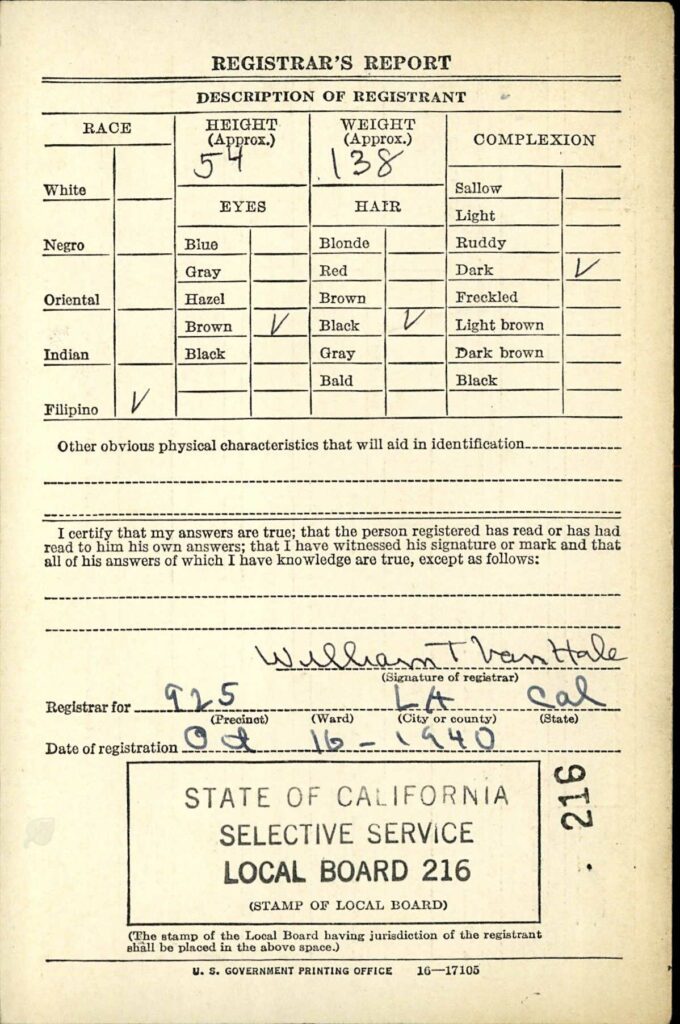 REGISTRAR'S REPORT
DESCRIPTION OF REGISTRANT
RACE
HEIGHT
(Approx.)
54
WEIGHT
(Approx.)
138
COMPLEXION
White
Negro
Oriental
Indian
Filipino ✓
EYES
Blue
Gray
Hazel
Brown ✓
Black
HAIR
Blonde
Red
Brown
Black ✓
Gray
Bald
Sallow
Light
Ruddy
Dark ✓
Freckled
Light brown
Dark brown
Black
Other obvious physical characteristics that will aid in identification
I certify that my answers are true; that the person registered has read or has had
read to him his own answers; that I have witnessed his signature or mark and that
all of his answers of which I have knowledge are true, except as follows:
William T Van Hale
(Signature of registrar)
Registrar for 925 LA Cal
(Precinct) (Ward) (City or county) (State)
Date of registration Oct 16-1940
STATE OF CALIFORNIA
SELECTIVE SERVICE
LOCAL BOARD 216
(STAMP OF LOCAL BOARD)
216
(The stamp of the Local Board having jurisdiction of the registrant
shall be placed in the above space.)
U. S. GOVERNMENT PRINTING OFFICE 16—17105